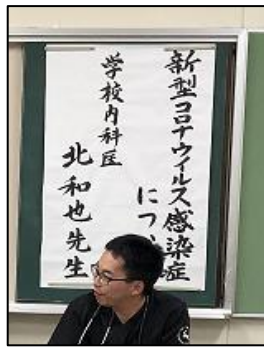 新型コロナウイルス感染症
につ
学校内科医
北和也先生